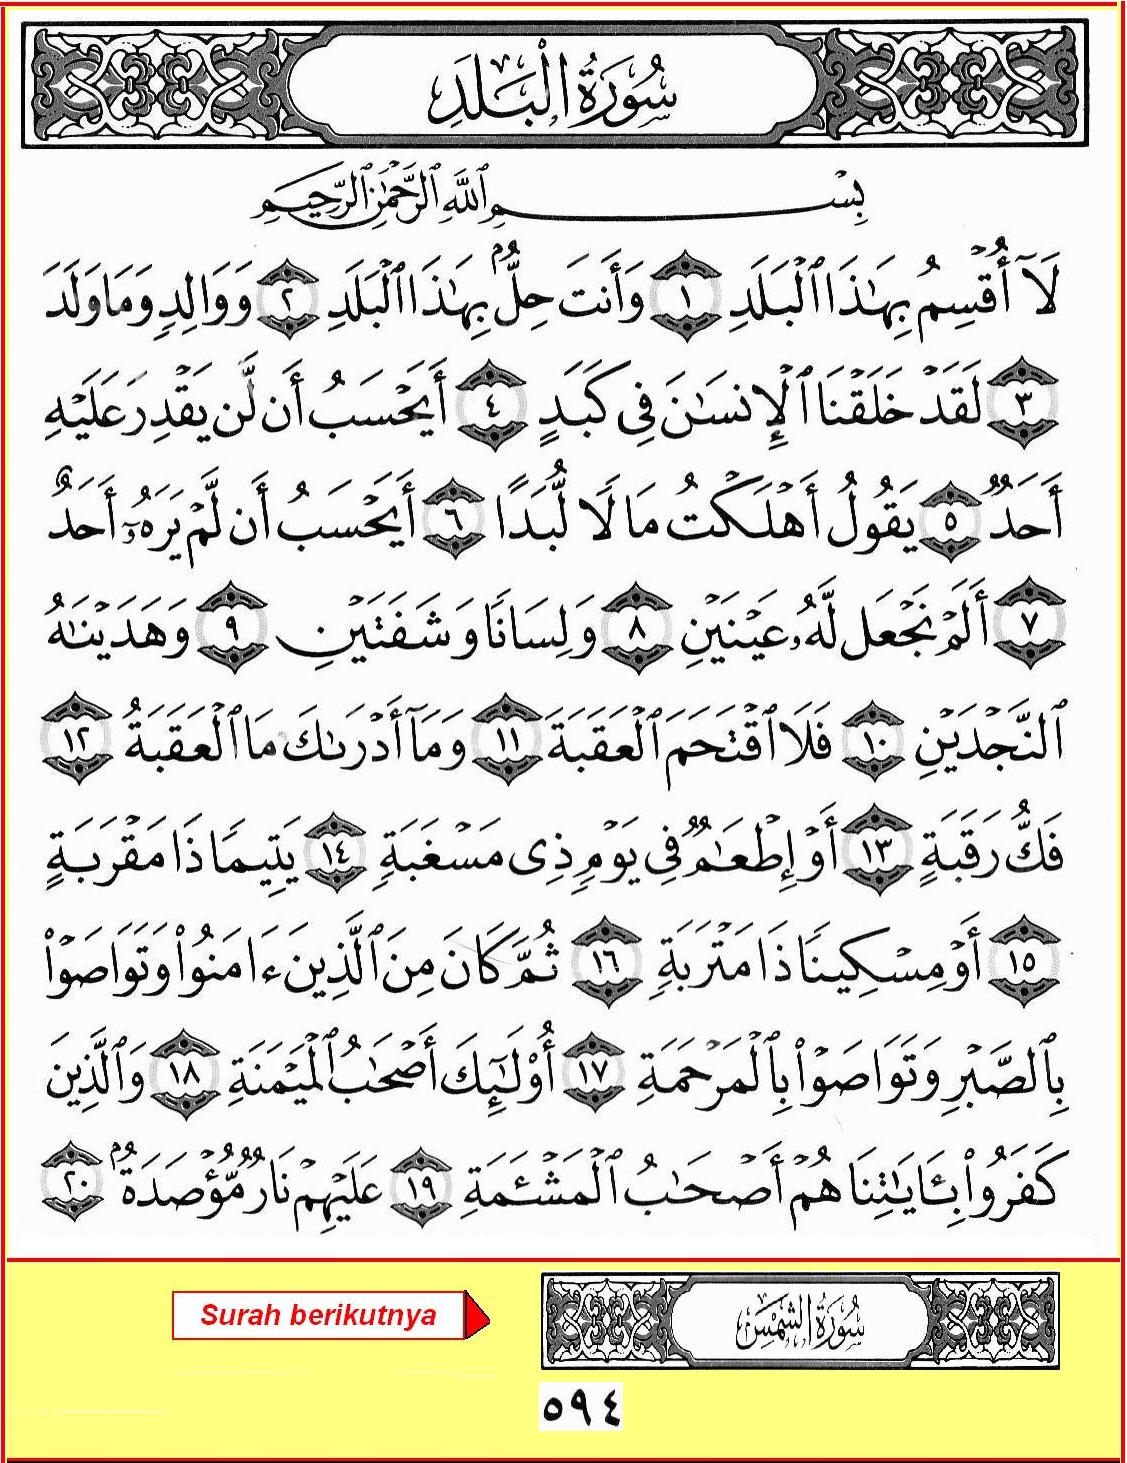 سُورَةُ الْبَلَدِ
بِسْمِ ٱللَّهِ ٱلرَّحْمَٰنِ ٱلرَّحِيمِ
لَآ أُقْسِمُ بِهَٰذَا ٱلْبَلَدِ ١ وَأَنتَ حِلٌّۢ بِهَٰذَا ٱلْبَلَدِ ٢ وَوَالِدٍ وَمَا وَلَدَ
٣ لَقَدْ خَلَقْنَا ٱلْإِنسَٰنَ فِى كَبَدٍ ٤ أَيَحْسَبُ أَن لَّن يَقْدِرَ عَلَيْهِ
أَحَدٌ ٥ يَقُولُ أَهْلَكْتُ مَالًا لُّبَدًا ٦ أَيَحْسَبُ أَن لَّمْ يَرَهُۥٓ أَحَدٌ
٧ أَلَمْ نَجْعَل لَّهُۥ عَيْنَيْنِ ٨ وَلِسَانًا وَشَفَتَيْنِ ٩ وَهَدَيْنَٰهُ
ٱلنَّجْدَيْنِ ١٠ فَلَا ٱقْتَحَمَ ٱلْعَقَبَةَ ١١ وَمَآ أَدْرَىٰكَ مَا ٱلْعَقَبَةُ ١٢
فَكُّ رَقَبَةٍ ١٣ أَوْ إِطْعَٰمٌ فِى يَوْمٍ ذِى مَسْغَبَةٍ ١٤ يَتِيمًا ذَا مَقْرَبَةٍ
١٥ أَوْ مِسْكِينًا ذَا مَتْرَبَةٍ ١٦ ثُمَّ كَانَ مِنَ ٱلَّذِينَ ءَامَنُوا۟ وَتَوَاصَوْا۟
بِٱلصَّبْرِ وَتَوَاصَوْا۟ بِٱلْمَرْحَمَةِ ١٧ أُو۟لَٰٓئِكَ أَصْحَٰبُ ٱلْمَيْمَنَةِ ١٨ وَٱلَّذِينَ
كَفَرُوا۟ بِـَٔايَٰتِنَا هُمْ أَصْحَٰبُ ٱلْمَشْـَٔمَةِ ١٩ عَلَيْهِمْ نَارٌ مُّؤْصَدَةٌۢ ٢٠
Surah berikutnya
سُورَةُ الشَّمْسِ
٥٩٤